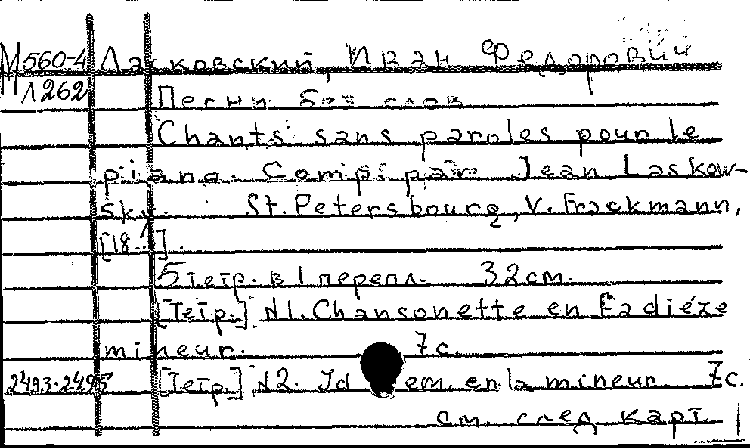 М560-4 Ласковский, Иван Федорович
Л262 Песни без слов
Chants sans paroles pour le
piano. Comp. par Jean Laskow-
sky. St. Petersbourg, V. Frackmann,
[18-?].
5 тетр. в 1 перепл. 32 см.
[Тетр.] N1. Chansonette en Fa dièze
mineur. 7 с.
2493-2495 [Тетр.] N2. Idem. en la mineur. 7с.
см. след. карт.